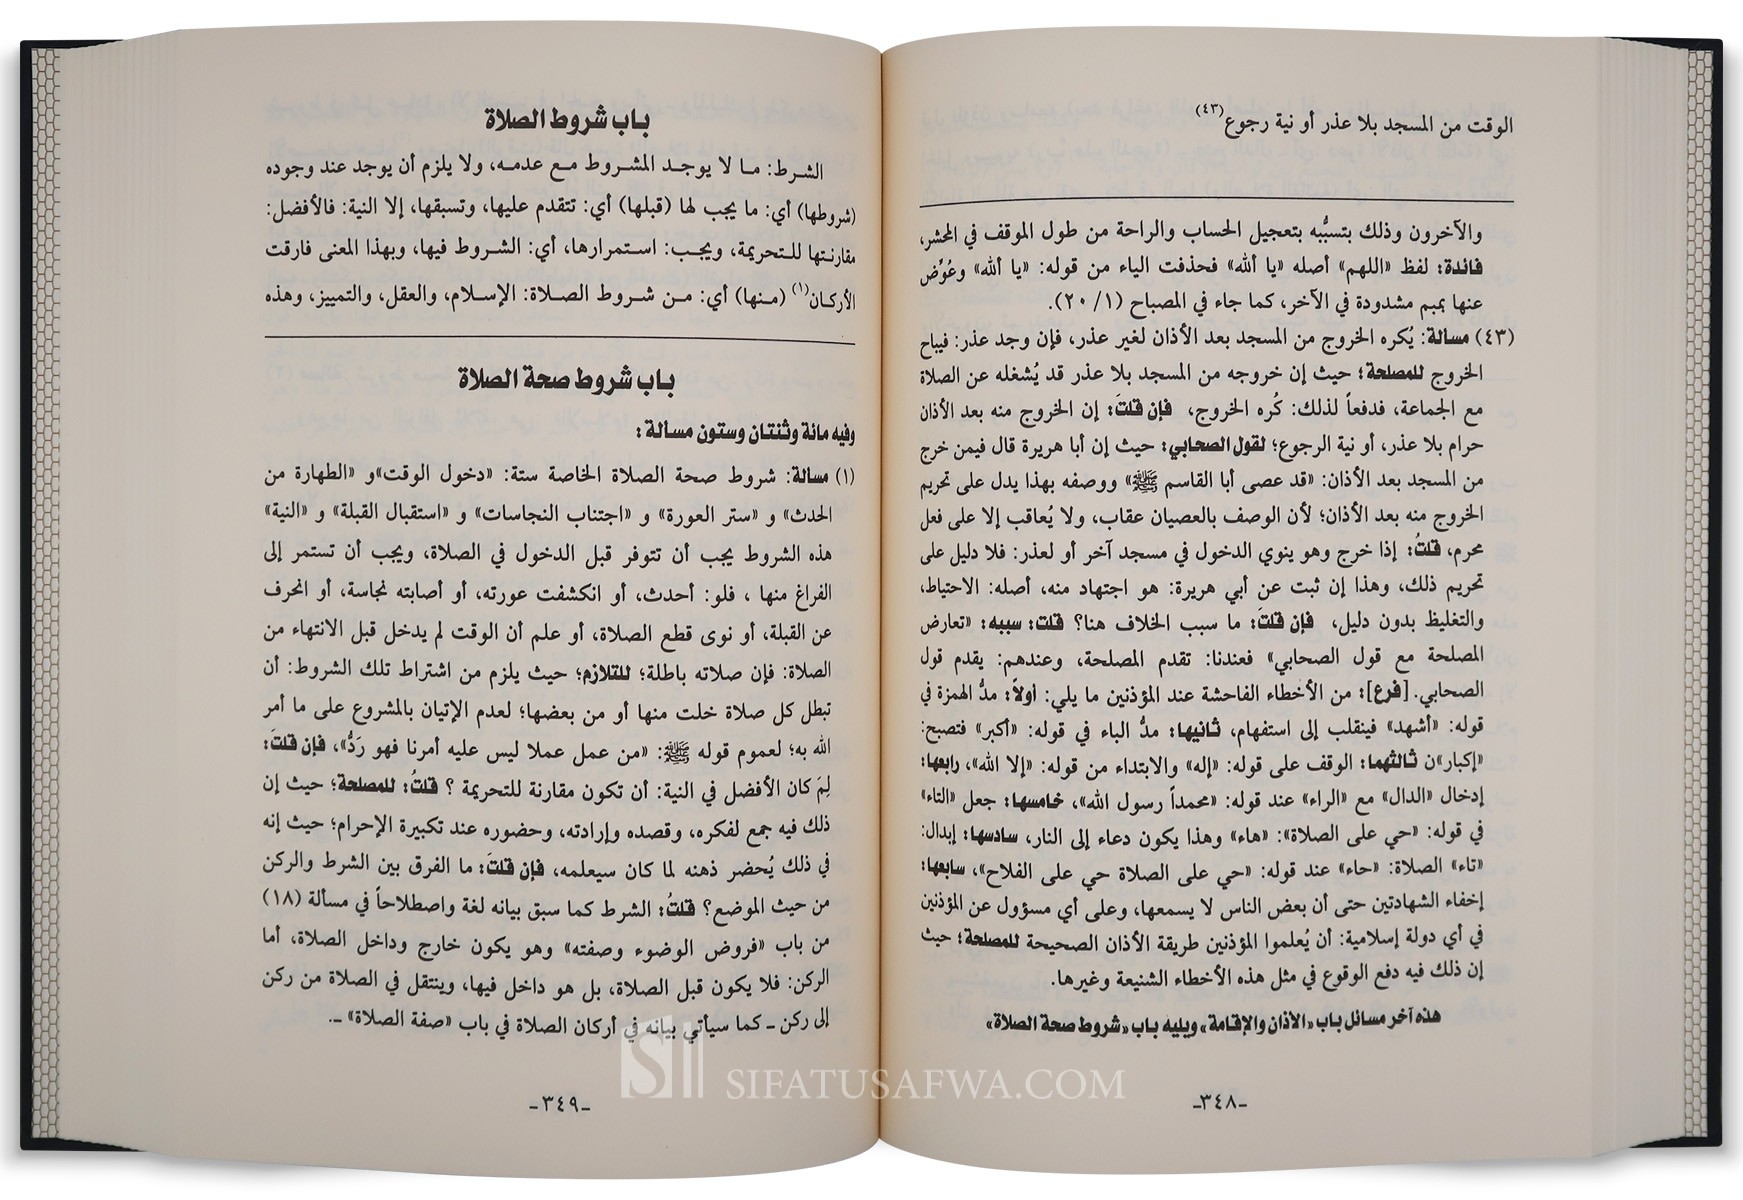 الوقت من المسجد بلا عذر أو نية رجوع(٤٣)
والآخرون وذلك بتسبُّبه بتعجيل الحساب والراحة من طول الموقف في المحشر،
فائدة: لفظ «اللهم» أصله «يا الله» فحذفت الياء من قوله: «يا الله» وعُوِّض
عنها بميم مشدودة في الآخر، كما جاء في المصباح (١/ ٢٠).
(٤٣) مسألة: يُكره الخروج من المسجد بعد الأذان لغير عذر، فإن وجد عذر: فيباح
الخروج للمصلحة؛ حيث إن خروجه من المسجد بلا عذر قد يُشغله عن الصلاة
مع الجماعة، فدفعاً لذلك: كُره الخروج، فإن قلتَ: إن الخروج منه بعد الأذان
حرام بلا عذر، أو نية الرجوع؛ لقول الصحابي: حيث إن أبا هريرة قال فيمن خرج
من المسجد بعد الأذان: «قد عصى أبا القاسم ﷺ» ووصفه بهذا يدل على تحريم
الخروج منه بعد الأذان؛ لأن الوصف بالعصيان عقاب، ولا يُعاقب إلا على فعل
محرم، قلتُ: إذا خرج وهو ينوي الدخول في مسجد آخر أو لعذر: فلا دليل على
تحريم ذلك، وهذا إن ثبت عن أبي هريرة: هو اجتهاد منه، أصله: الاحتياط،
والتغليظ بدون دليل، فإن قلتَ: ما سبب الخلاف هنا؟ قلت: سببه: «تعارض
المصلحة مع قول الصحابي» فعندنا: تقدم المصلحة، وعندهم: يقدم قول
الصحابي. [فرع]: من الأخطاء الفاحشة عند المؤذنين ما يلي: أولاً: مدُّ الهمزة في
قوله: «أشهد» فينقلب إلى استفهام، ثانيها: مدُّ الباء في قوله: «أكبر» فتصبح:
«إكبار»ن ثالثهما: الوقف على قوله: «إله» والابتداء من قوله: «إلا الله»، رابعها:
إدخال «الدال» مع «الراء» عند قوله: «محمداً رسول الله»، خامسها: جعل «التاء»
في قوله: «حي على الصلاة»: «هاء» وهذا يكون دعاء إلى النار، سادسها: إبدال:
«تاء» الصلاة: «حاء» عند قوله: «حي على الصلاة حي على الفلاح»، سابعها:
إخفاء الشهادتين حتى أن بعض الناس لا يسمعها، وعلى أي مسؤول عن المؤذنين
في أي دولة إسلامية: أن يُعلموا المؤذنين طريقة الأذان الصحيحة للمصلحة؛ حيث
إن ذلك فيه دفع الوقوع في مثل هذه الأخطاء الشنيعة وغيرها.
هذه آخر مسائل باب «الأذان والإقامة» ويليه باب «شروط صحة الصلاة»
-٣٤٨-
باب شروط الصلاة
الشرط: ما لا يوجد المشروط مع عدمه، ولا يلزم أن يوجد عند وجوده
(شروطها) أي: ما يجب لها (قبلها) أي: تتقدم عليها، وتسبقها، إلا النية: فالأفضل:
مقارنتها للتحريمة، ويجب: استمرارها، أي: الشروط فيها، وبهذا المعنى فارقت
الأركان(١) (منها) أي: من شروط الصلاة: الإسلام، والعقل، والتمييز، وهذه
باب شروط صحة الصلاة
وفيه مائة وثنتان وستون مسألة:
(١) مسألة: شروط صحة الصلاة الخاصة ستة: «دخول الوقت»و «الطهارة من
الحدث» و «ستر العورة» و «اجتناب النجاسات» و «استقبال القبلة» و «النية»
هذه الشروط يجب أن تتوفر قبل الدخول في الصلاة، ويجب أن تستمر إلى
الفراغ منها ، فلو: أحدث، أو انكشفت عورته، أو أصابته نجاسة، أو انحرف
عن القبلة، أو نوى قطع الصلاة، أو علم أن الوقت لم يدخل قبل الانتهاء من
الصلاة: فإن صلاته باطلة؛ للتلازم؛ حيث يلزم من اشتراط تلك الشروط: أن
تبطل كل صلاة خلت منها أو من بعضها؛ لعدم الإتيان بالمشروع على ما أمر
الله به؛ لعموم قوله ﷺ: «من عمل عملا ليس عليه أمرنا فهو رَدُّ»، فإن قلتَ:
لِمَ كان الأفضل في النية: أن تكون مقارنة للتحريمة ؟ قلتُ: للمصلحة؛ حيث إن
ذلك فيه جمع لفكره، وقصده وإرادته، وحضوره عند تكبيرة الإحرام؛ حيث إنه
في ذلك يُحضر ذهنه لما كان سيعلمه، فإن قلتَ: ما الفرق بين الشرط والركن
من حيث الموضع؟ قلتُ: الشرط كما سبق بيانه لغة واصطلاحاً في مسألة (١٨)
من باب «فروض الوضوء وصفته» وهو يكون خارج وداخل الصلاة، أما
الركن: فلا يكون قبل الصلاة، بل هو داخل فيها، وينتقل في الصلاة من ركن
إلى ركن ـ كما سيأتي بيانه في أركان الصلاة في باب «صفة الصلاة» ـ.
-٣٤٩-
SIFATUSAFWA.COM